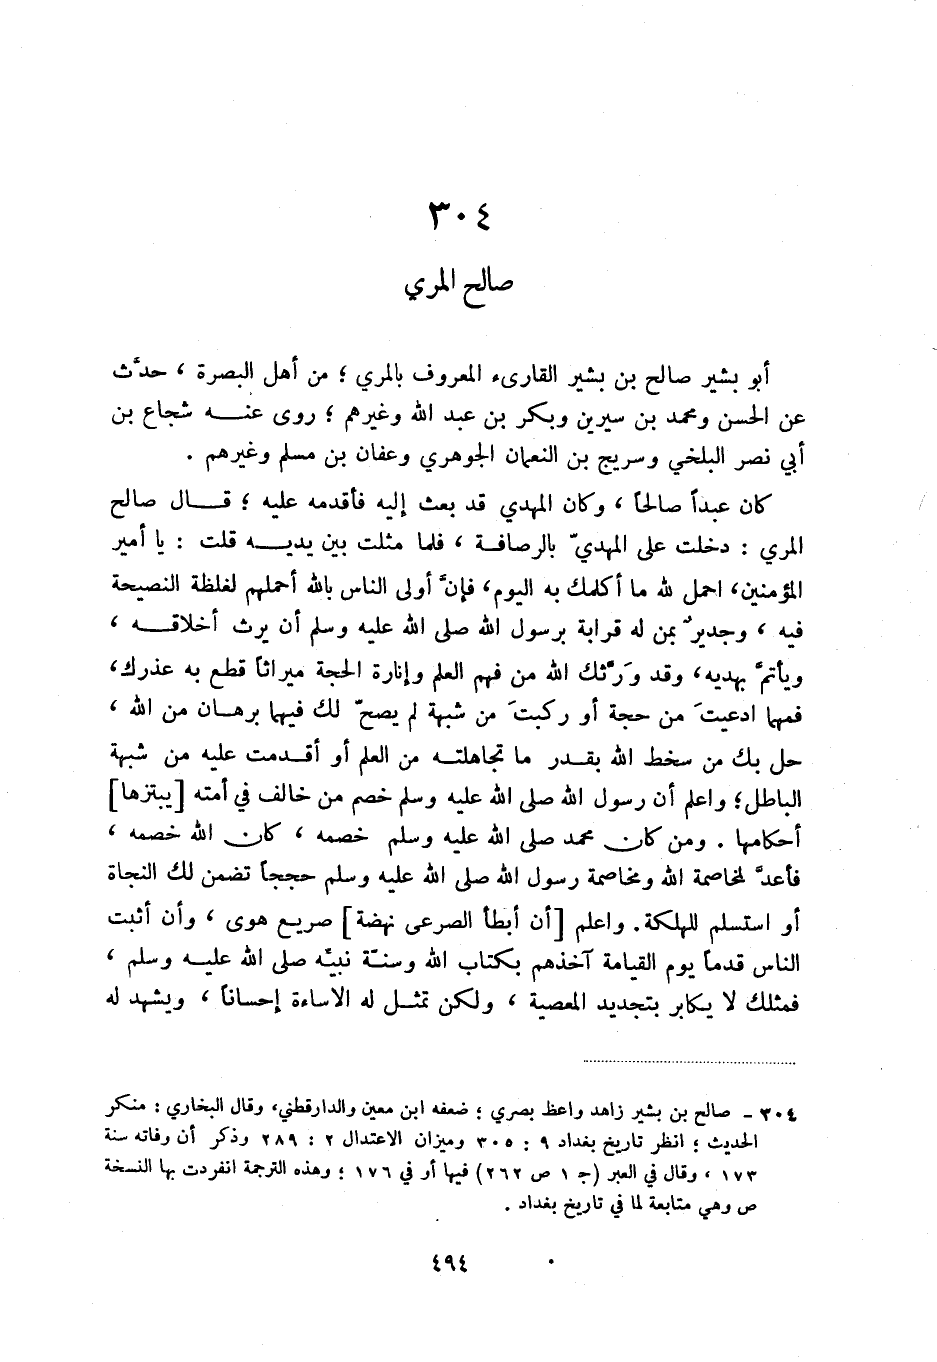 ٣٠٤
صالح المري
أبو بشير صالح بن بشير القارىء المعروف بالمري ؛ من أهل البصرة ، حدَّث
عن الحسن ومحمد بن سيرين وبكر بن عبد الله وغيرهم ؛ روى عنـــه شجاع بن
أبي نصر البلخي وسريج بن النعمان الجوهري وعفان بن مسلم وغيرهم .
كان عبداً صالحاً ، وكان المهدي قد بعث إليه فأقدمه عليه ؛ قـــال صالح
المري : دخلت على المهديّ بالرصافـة ، فلما مثلت بين يديـــه قلت : يا أمير
المؤمنين، احمل لله ما أكلمك به اليوم، فإنَّ أولى الناس بالله أحملهم لغلظة النصيحة
فيه ، وجديرٌ بمن له قرابة برسول الله صلى الله عليه وسلم أن يرث أخلاقـــه ،
ويأتمَّ بهديه، وقد ورَّثك الله من فهم العلم وإنارة الحجة ميراثاً قطع به عذرك،
فمهما ادعيتَ من حجة أو ركبتَ من شبهة لم يصحّ لك فيها برهـان من الله ،
حل بك من سخط الله بقـدر ما تجاهلتـه من العلم أو أقـدمت عليه من شبهة
الباطل؛ واعلم أن رسول الله صلى الله عليه وسلم خصم من خالف في أمته [يبتزها]
أحكامها . ومن كان محمد صلى الله عليه وسلم خصمه ، كان الله خصمه ،
فأعدَّ لمخاصمة الله ومخاصمة رسول الله صلى الله عليه وسلم حججاً تضمن لك النجاة
أو استسلم للهلكة. واعلم [أن أبطأ الصرعى نهضة] صريع هوى ، وأن أثبت
الناس قدماً يوم القيامة آخذهم بكتاب الله وسنـة نبيّه صلى الله عليـه وسلم ،
فمثلك لا يكابر بتجديد المعصية ، ولكن تمثـل له الاساءة إحساناً ، ويشهد له
٣٠٤ - صالح بن بشير زاهد واعظ بصري ؛ ضعفه ابن معين والدارقطني، وقال البخاري : منكر
الحديث ؛ انظر تاريخ بغداد ٩ : ٣٠٥ وميزان الاعتدال ٢ : ٢٨٩ وذكر أن وفاته سنة
١٧٣ ، وقال في العبر (ج ١ ص ٢٦٢) فيها أو في ١٧٦ ؛ وهذه الترجمة انفردت بها النسخة
ص وهي متابعة لما في تاريخ بغداد .
٤٩٤